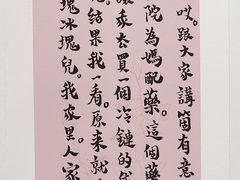 哎。跟大家講箇有意
院為媽配藥。這個藥
黍去買個冷鏈的保
紡果我一看。原来就
塊冰塊兒。我家里。人家